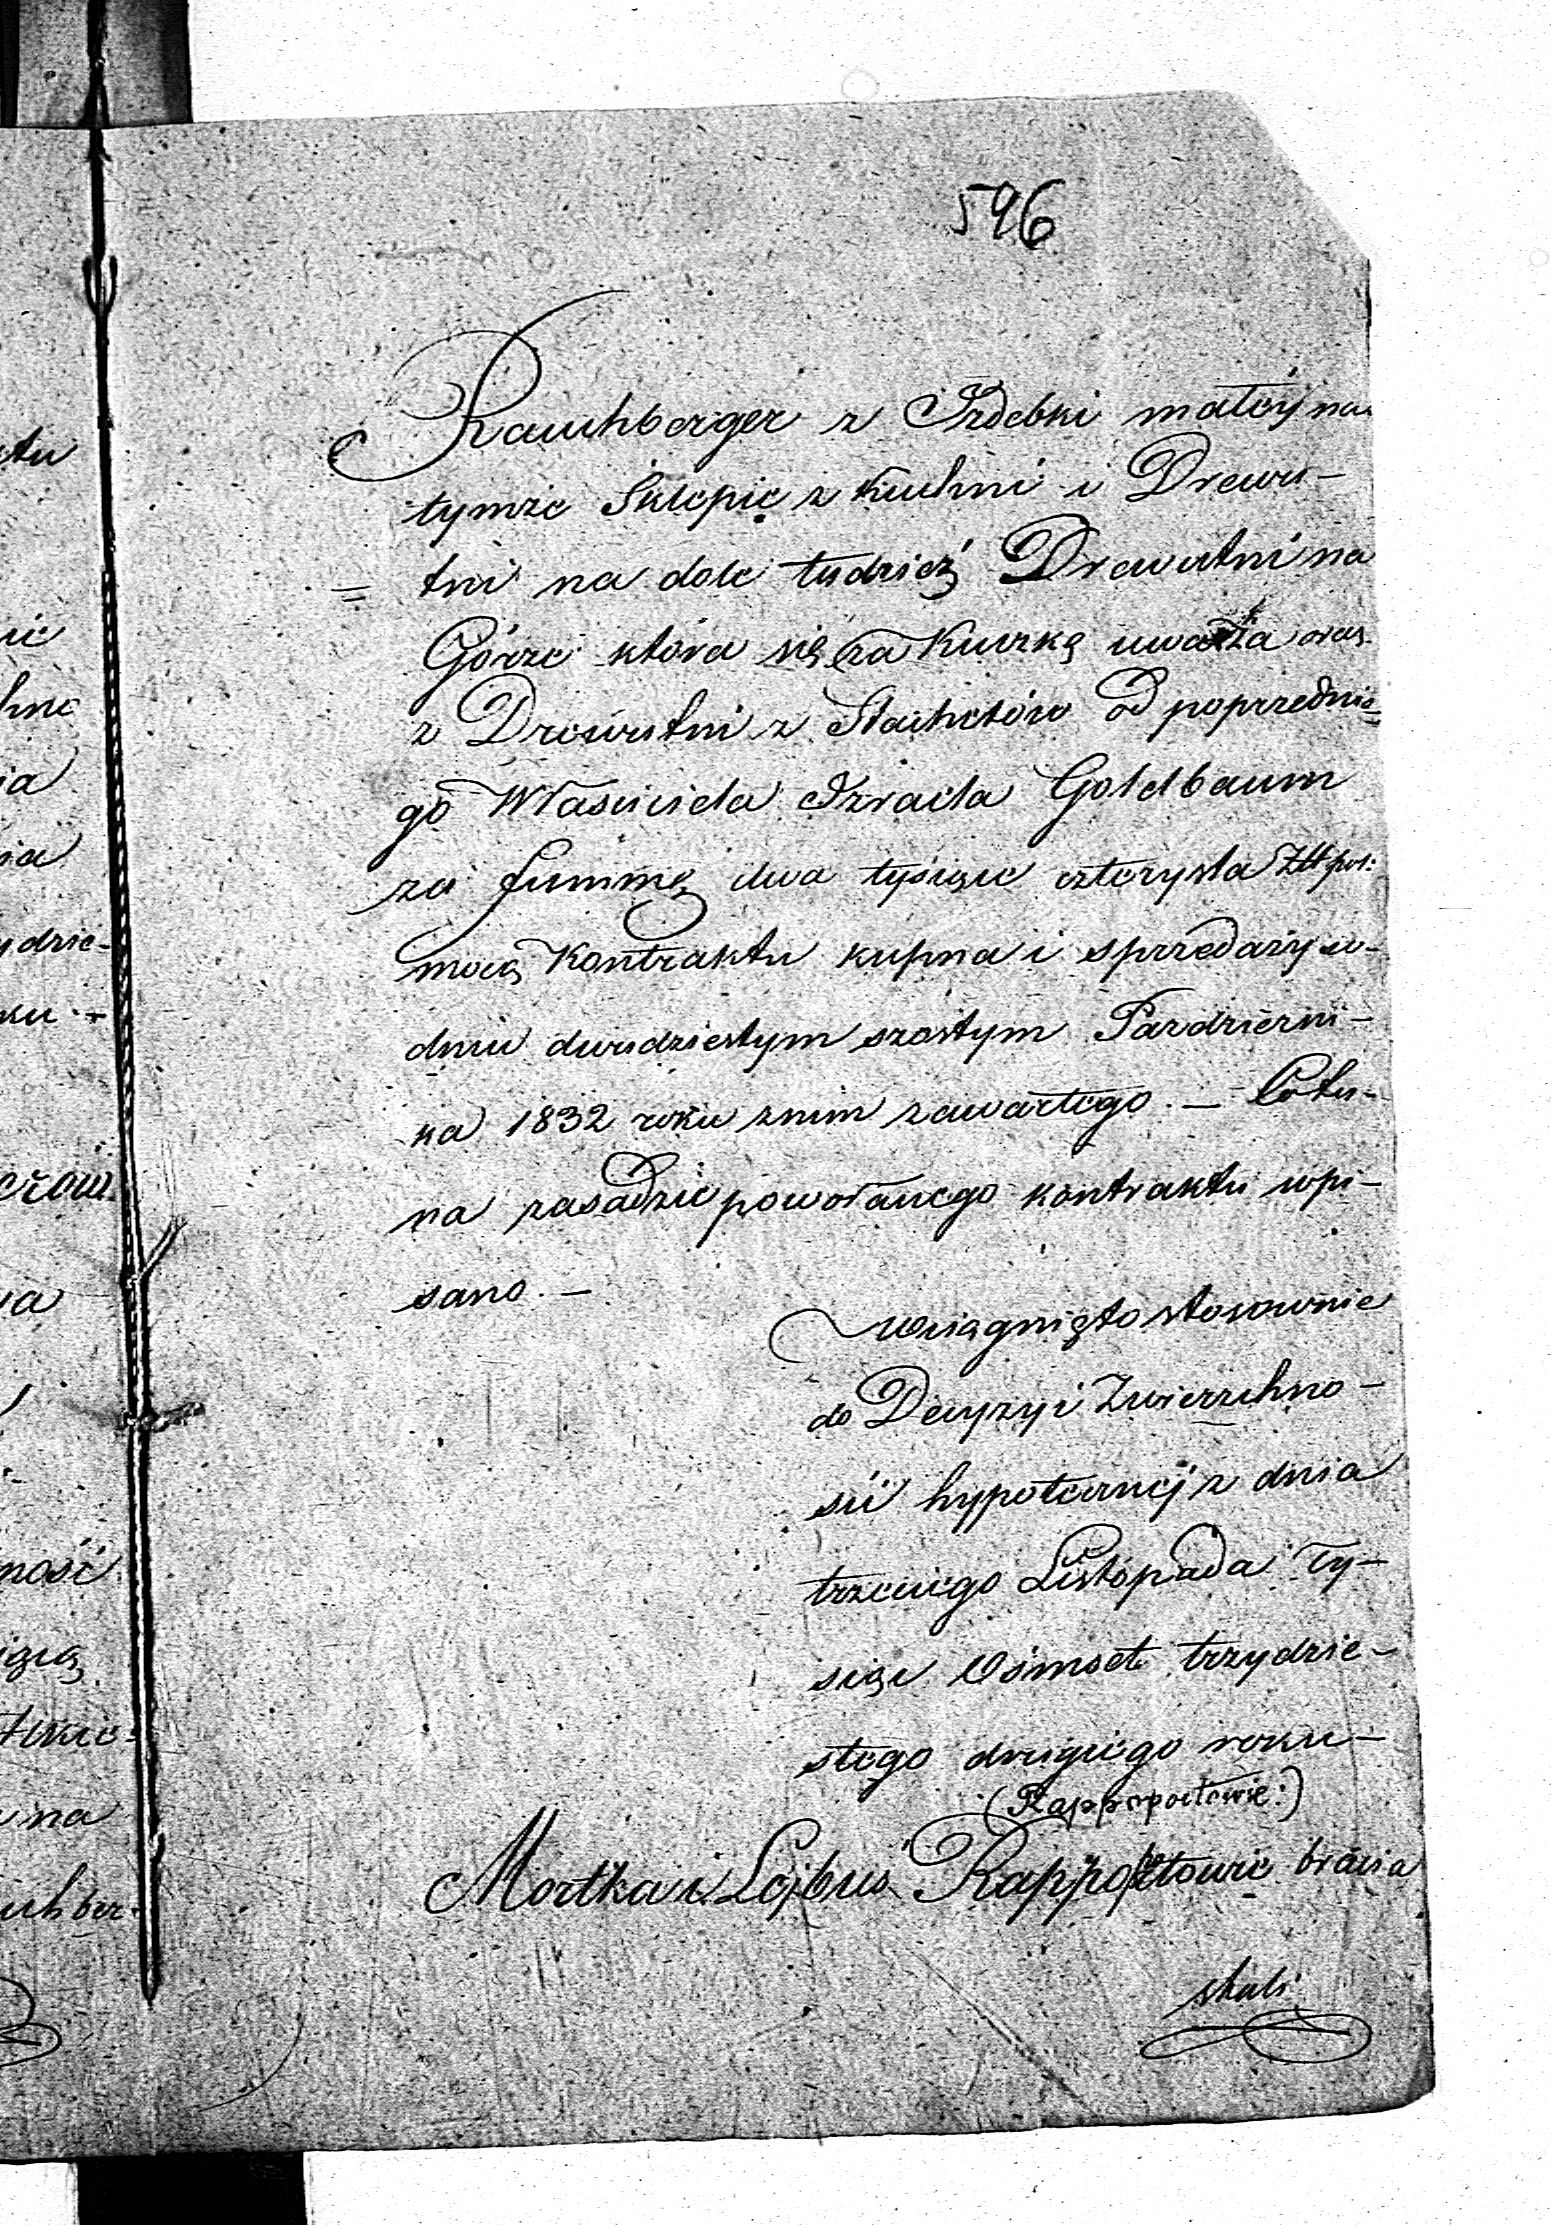 596
Rauchberger z Izdebki małéy na
tymże Sklepie z Kuchni i Drewu-
= tni na dole tudzież Drewutni na
Górze która się za Kuczkę uważa oraz
z Drewutni z Stachetów od poprzednie=
go Właściciela Izraela Goldbaum
za summę dwa tysiące czterysta Złł pol:
mocą Kontraktu kupna i sprzedaży w-
dniu dwudziestym szóstym Pazdzierni-
ka 1832 roku znim zawartego. — Co tu-
na zasadzie powołanego kontraktu wpi-
sano. —
Wciągnięto stosownie
do Decyzyi Zwierzchno-
ści hypotecznéj z dnia
trzeciego Listopada Ty-
siąc Ośmset trzydzie-
stego drugiego roku —
(Rappoportowie:)
Mortka i Lejbuś Rappoltowie bracia
skali
ctu
nie
hne
ia
nia
ydzie-
ku -
czów
va
ność
igią
łkie-
na
uchber-